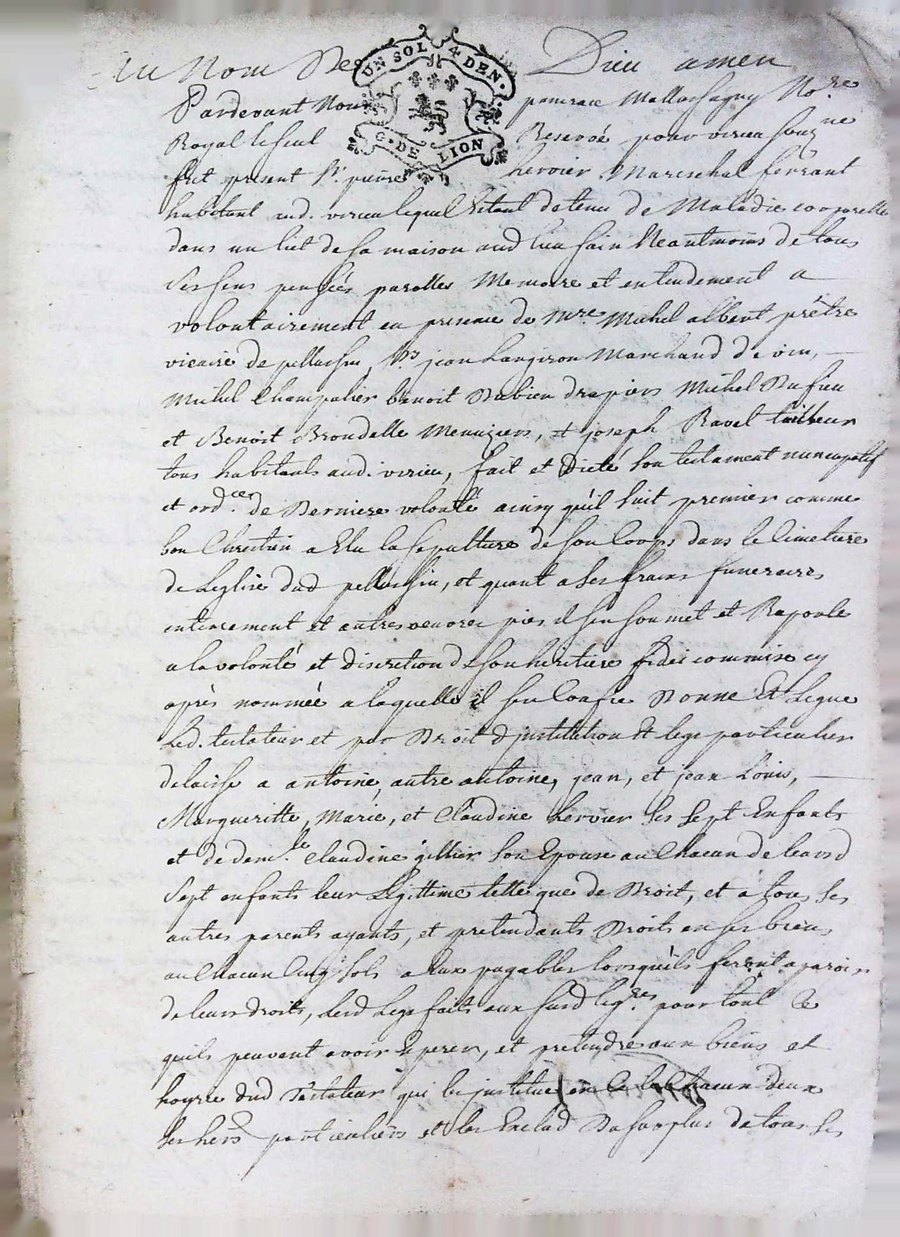 Au Nom De Dieu amen
UN SOL 4 DEN.
G. DE LION
Pardevant Nous Mallassagny No.re
Royal le seul Reservé pour virieu souz.ne
fut present Sr. pierre hervier Mareschal ferrant
habitant aud. virieu lequel Etant detenu de Maladie corporelle
dans un lict de sa maison aud lieu sain Neantmoins de tous
ses sens pensées parolles Memoire et entendement a
volontairement en presence de Mre. Michel albert prêtre
vicaire de pellussin, Sr. jean Langiron Marchand de vin,
Michel Champalier benoit Dubien drapiers Michel Dufieu
et Benoit Brondelle Menuziers, et joseph Ravel tailleur
tous habitants aud. virieu, fait et Dicté son testament nuncupatif
et ord.ces de Derniere volonté ainsy qu'il suit premier comme
bon Chrestien a Elu la sepulture de son Corps dans le Cimetiere
de Leglise dud pellussin, et quant a ses frais funeraires
enterrement et autres oeuvres pies il s'en soumet et Raporte
a la volonté et discretion de son heritiere fideicommise cy
après nommée a laquelle il s'en Confie Donne Et Legue
Led. testateur et par Droit d'institution et lege particulier
delaisse a antoine, autre antoine, jean, et jean Louis,
Margueritte, Marie, et Claudine hervier ses sept Enfants
et de dem.lle Claudine gillier son Epouse au Chacun de leursd
sept enfants leur Legittime telle que de Droit, et à tous ses
autres parents ayants, et pretendants Droits en ses biens
au Chacun Cinq sols a Eux payables lorsqu'ils feront aparoir
de leurs droits, Lesd Lege faits aux susd leg.res pour tout Ce
qu'ils peuvent avoir Esperer, et pretendre aux biens et
hoyrie dud Testateur qui les institue en Ce le Chacun deux
ses hers particuliers et les Exclud Du surplus de tous ses